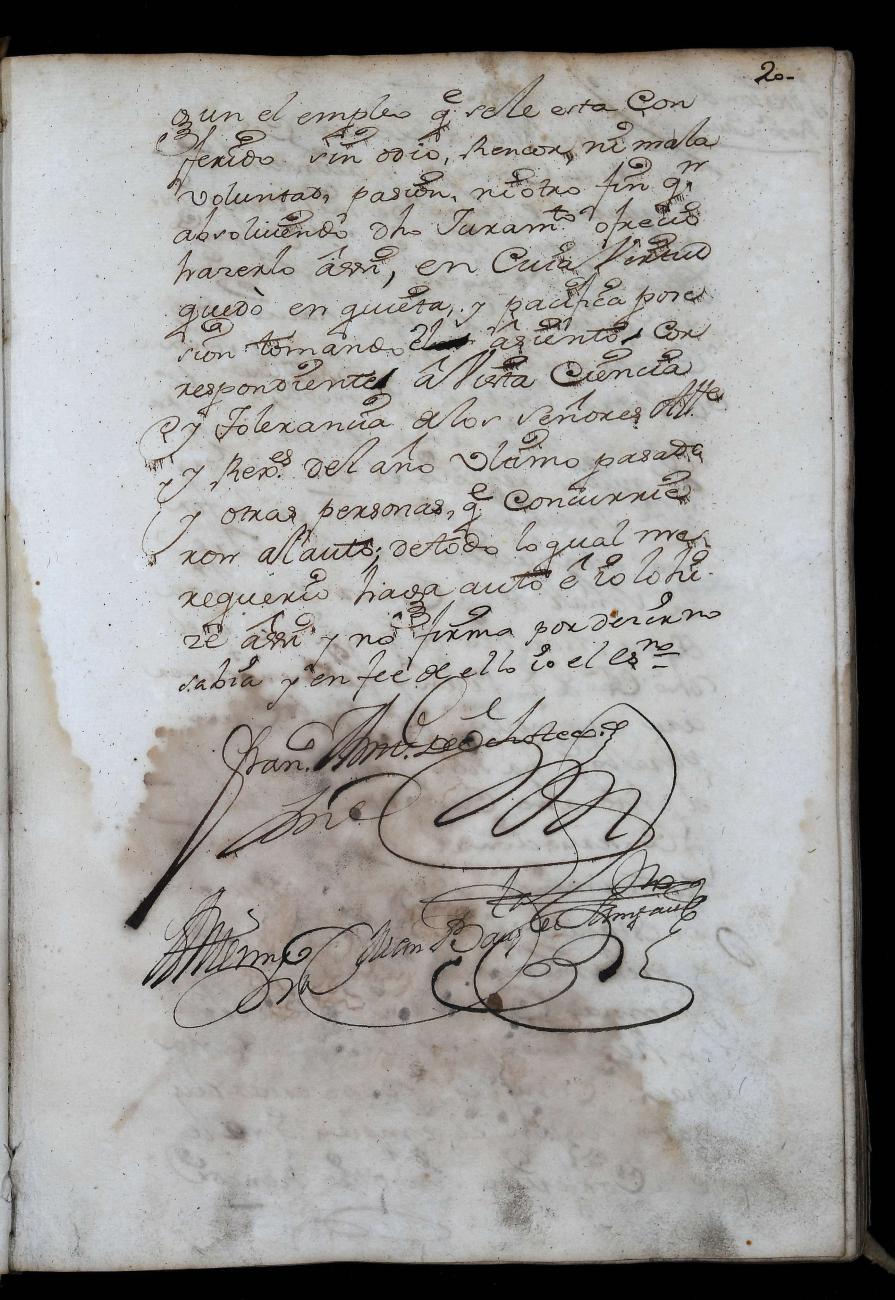 20-
gun el empleo qe se le esta Con
ferido sin odio, Rencor, ni mala
voluntad, pasion, ni otro fin qn
absoluiendo dho Juramto ofrecio
hazerlo assi, en Cuia Virtud
quedò en quieta, y pacifica pose
sion tomando el asiento Cor
respondiente â Vista Ciencia
y Tolerancia de los señores Alle
y Rexes del año Ultimo pasado
y otras personas, qe Concurrie
ron al auto; de todo lo qual me
requerio haga auto ê io lo hi
ze assi y no firma por dezir no
sabia y en fee de ello io el esno
Fran. Antt. de
Ante mi
Juan Bauta